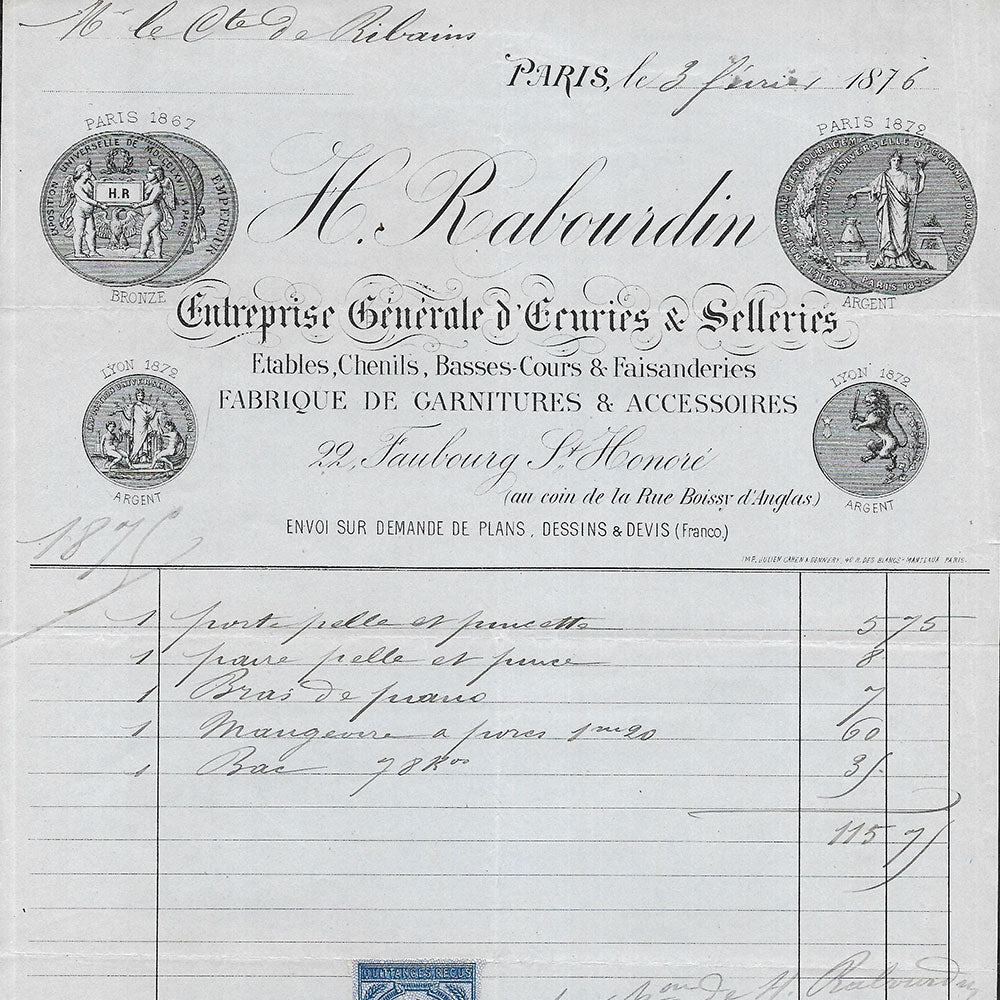 Mr le Cte de Ribains
PARIS, le 3 février 1876
PARIS 1867
EXPOSITION UNIVERSELLE DE
H.R
BRONZE
PARIS 1872
ARGENT
H. Rabourdin
Entreprise Générale d'Ecuries & Selleries
Etables, Chenils, Basses-Cours & Faisanderies
FABRIQUE DE GARNITURES & ACCESSOIRES
LYON 1872
ARGENT
LYON 1872
ARGENT
22, Faubourg St Honoré
(au coin de la Rue Boissy d'Anglas.)
ENVOI SUR DEMANDE DE PLANS, DESSINS & DEVIS (Franco.)
1875
IMP. JULIEN CAHEN & DENNERY, 40 R. DES BLANCS-MANTEAUX PARIS.
1 porte pelle et pincette 5 75
1 paire pelle et pince 8
1 Bras de piano 7
1 Mangeoire a porcs 1m20 60
1 Bac 78 Kos 35
115 75
QUITTANCES REÇUS
de H. Rabourdin